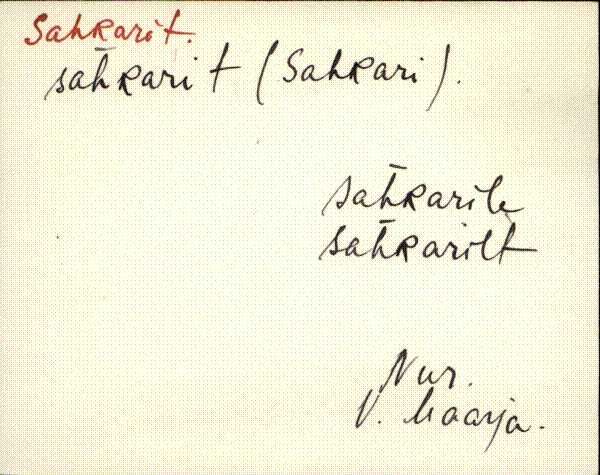 Sahkarit.
sah̄kari t (Sahkari).
sah̄karile
sah̄karilt
Nur.
V. Maarja.